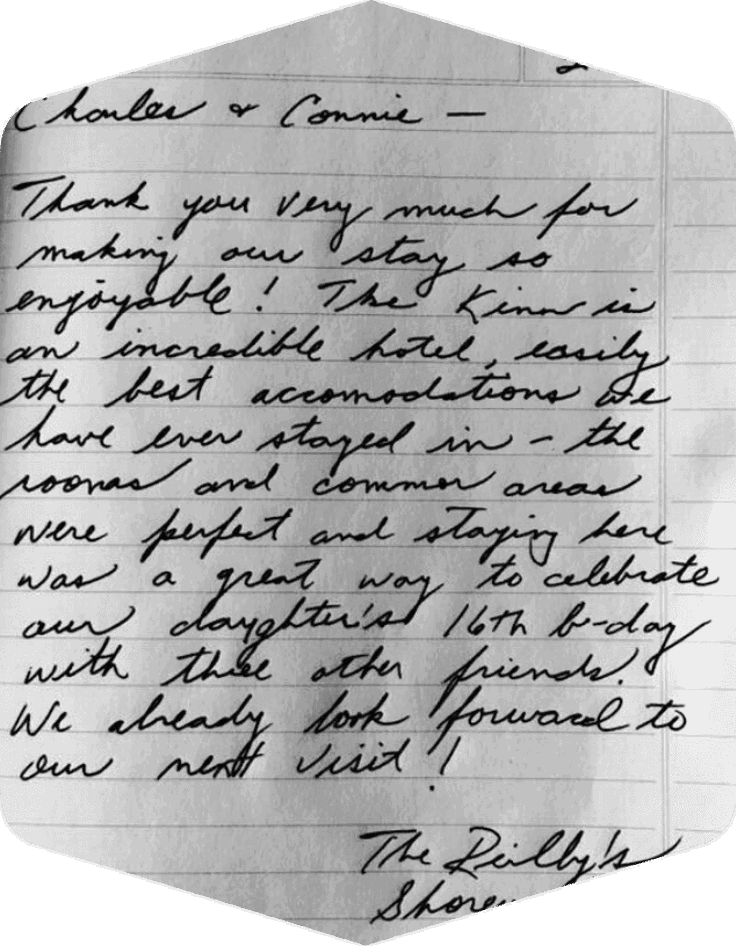 Charles & Connie —
Thank you very much for
making our stay so
enjoyable! The Kinn is
an incredible hotel, easily
the best accomodations we
have ever stayed in - the
rooms and common areas
were perfect and staying here
was a great way to celebrate
our daughter's 16th b-day
with three other friends.
We already look forward to
our next visit!
The Reilly's